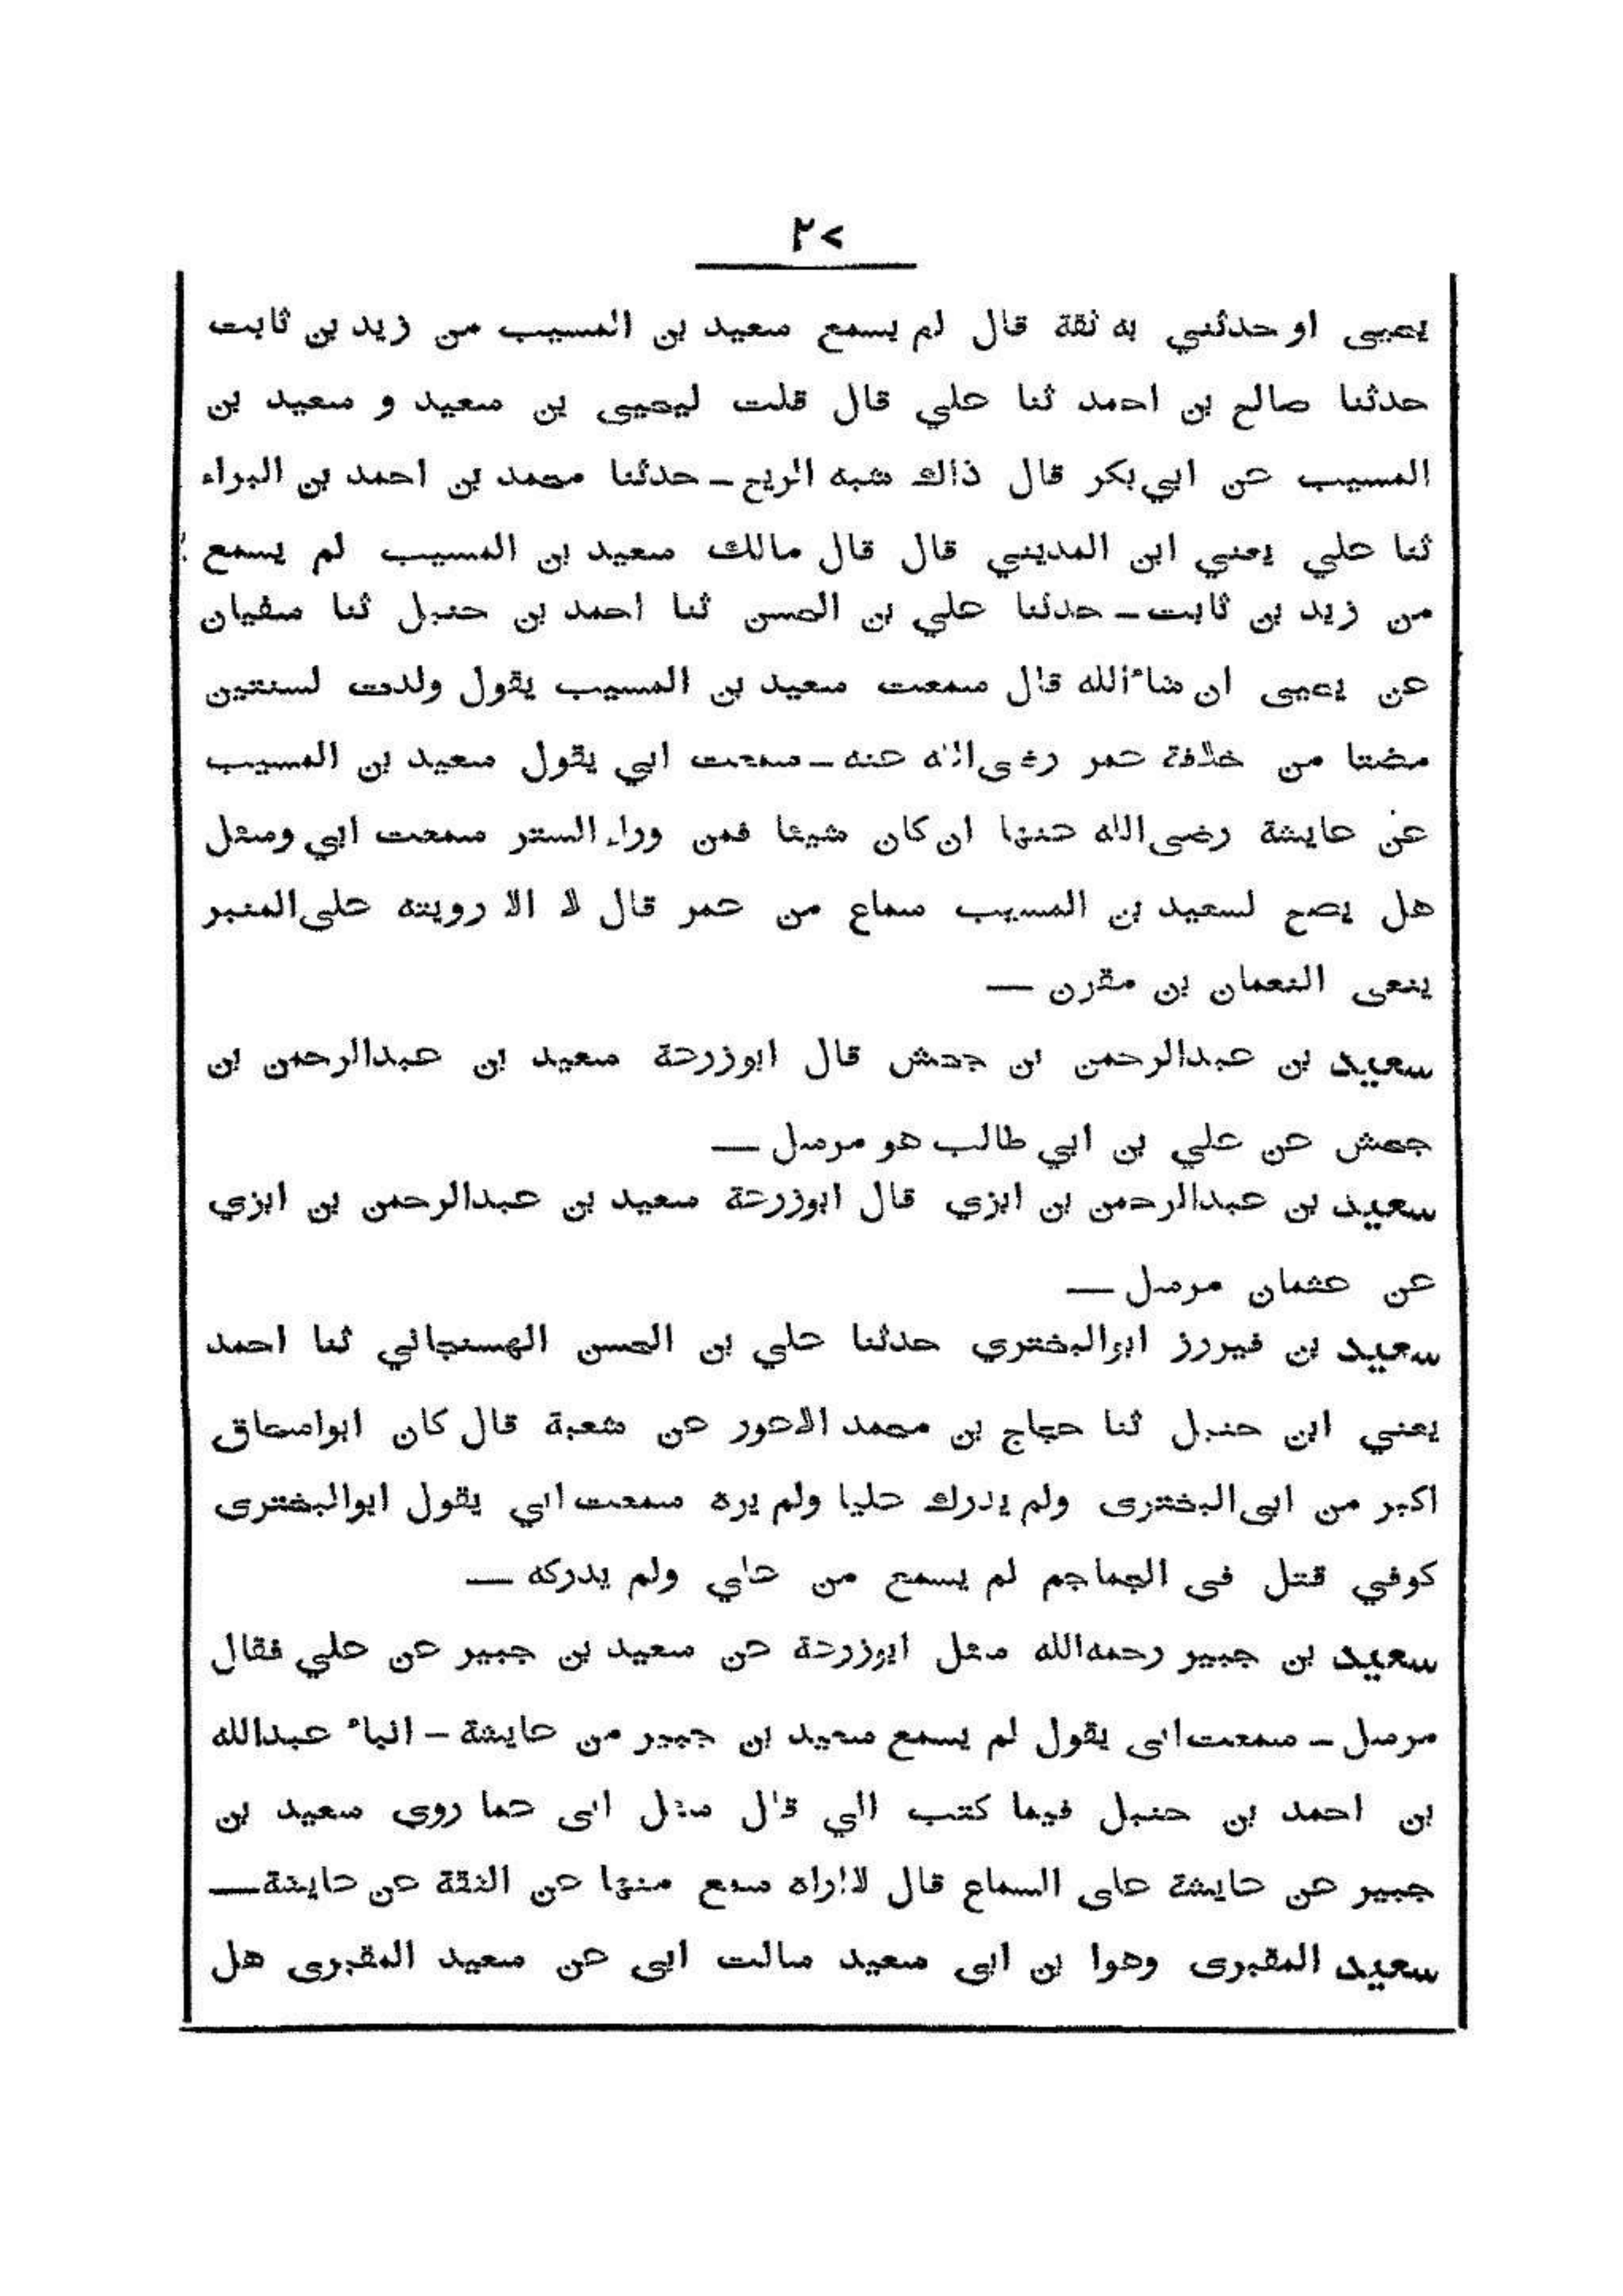 ٢٧
يحيى او حدثني به ثقة قال لم يسمع سعيد بن المسيب من زيد بن ثابت
حدثنا صالح بن احمد ثنا علي قال قلت ليحيى بن سعيد و سعيد بن
المسيب عن ابي بكر قال ذاك شبه الريح ـ حدثنا محمد بن احمد بن البراء
ثنا علي يعني ابن المديني قال قال مالك سعيد بن المسيب لم يسمع
من زيد بن ثابت ـ حدثنا علي بن الحسن ثنا احمد بن حنبل ثنا سفيان
عن يحيى ان شاء الله قال سمعت سعيد بن المسيب يقول ولدت لسنتين
مضتا من خلافة عمر رضى الله عنه ـ سمعت ابي يقول سعيد بن المسيب
عن عايشة رضى الله عنها ان كان شيئا فمن وراء الستر سمعت ابي وسئل
هل يصح لسعيد بن المسيب سماع من عمر قال لا الا رويته على المنبر
ينعى النعمان بن مقرن ــ
سعيد بن عبدالرحمن بن جحش قال ابوزرعة سعيد بن عبدالرحمن بن
جحش عن علي بن ابي طالب هو مرسل ــ
سعيد بن عبدالرحمن بن ابزي قال ابوزرعة سعيد بن عبدالرحمن بن ابزي
عن عثمان مرسل ــ
سعيد بن فيروز ابوالبختري حدثنا علي بن الحسن الهسنجاني ثنا احمد
يعني ابن حنبل ثنا حجاج بن محمد الاعور عن شعبة قال كان ابواسحاق
اكبر من ابى البخترى ولم يدرك عليا ولم يره سمعت ابي يقول ابوالبخترى
كوفي قتل فى الجماجم لم يسمع من علي ولم يدركه ــ
سعيد بن جبير رحمه الله سئل ابوزرعة عن سعيد بن جبير عن علي فقال
مرسل ـ سمعت ابى يقول لم يسمع سعيد بن جبير من عايشة ـ انباء عبدالله
بن احمد بن حنبل فيما كتب الي قال سئل ابى عما روى سعيد بن
جبير عن عايشة على السماع قال لا اراه سمع منها عن الثقة عن عايشة ــ
سعيد المقبرى وهوا بن ابى سعيد سالت ابى عن سعيد المقبرى هل